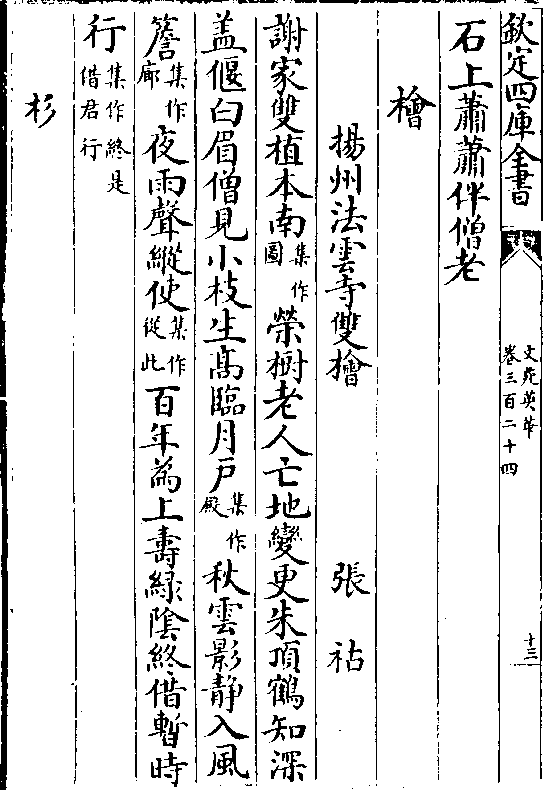 欽定四庫全書
文苑英華
卷三百二十四
十三
石上蕭蕭伴僧老
檜
揚州法雲寺雙檜
張祜
謝家雙植本南集作圖榮樹老人亡地變更朱頂鶴知深
盖偃白眉僧見小枝生髙臨月戸集作殿秋雲影静入風
簷集作廊夜雨聲縱使集作從此百年為上壽緑隂終借暫時
行集作終是借君行
杉